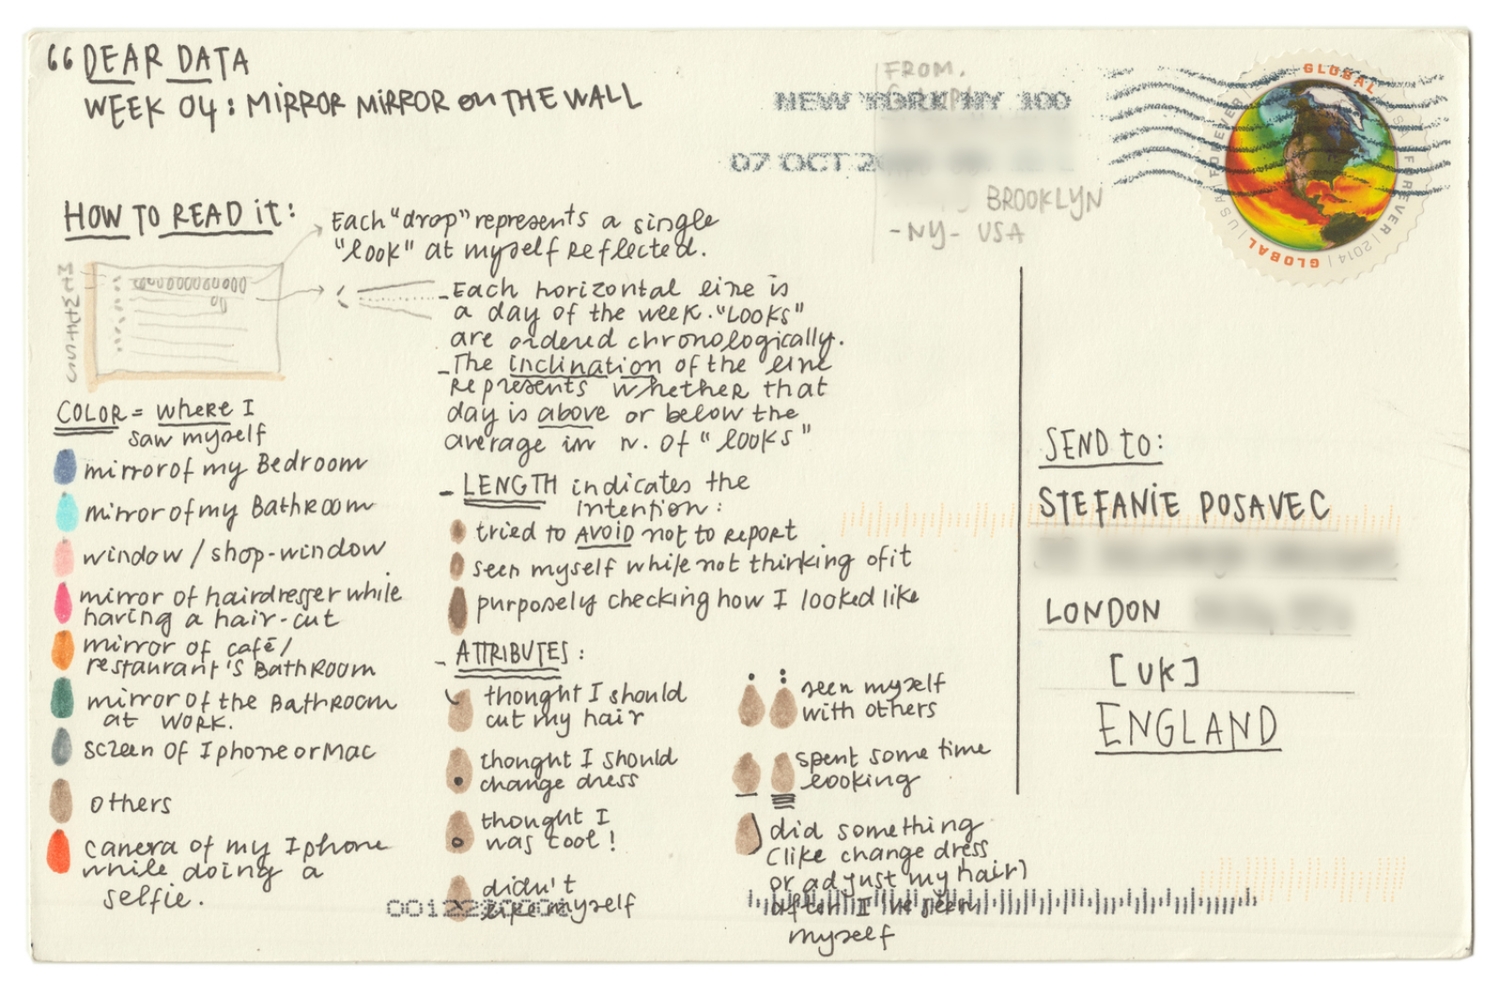 “ DEAR DATA
WEEK 04: MIRROR MIRROR on THE WALL
FROM.
NEW YORK NY 100
07 OCT
BROOKLYN
-NY- USA
GLOBAL
USA FOREVER 2014
GLOBAL
USA FOREVER
HOW TO READ it:
Each "drop" represents a single
"look" at myself reflected.
M T W T F S S
- Each horizontal line is
a day of the week. "Looks"
are ordered chronologically.
- The inclination of the line
represents whether that
day is above or below the
average in n. of "looks"
COLOR = where I
saw myself
mirror of my Bedroom
mirror of my Bathroom
window / shop-window
mirror of hairdresser while
having a hair-cut
mirror of café/
restaurant's BathRoom
mirror of the BathRoom
at work.
screen of Iphone or Mac
others
camera of my Iphone
while doing a
selfie.
- LENGTH indicates the
intention:
tried to AVOID not to report
seen myself while not thinking of it
purposely checking how I looked like
- ATTRIBUTES:
thought I should
cut my hair
thought I should
change dress
thought I
was cool!
didn't
like myself
seen myself
with others
spent some time
looking
did something
(like change dress
or adjust my hair)
after I've seen
myself
SEND to:
STEFANIE POSAVEC
LONDON
[UK]
ENGLAND